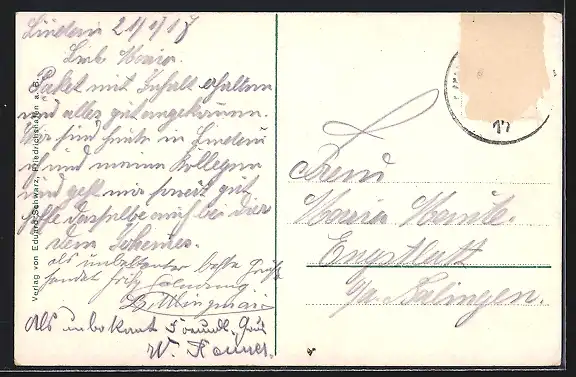 Lindau 21/1/17
Lieb Maria.
Paket mit Inhalt erhalten
und alles gut angekommen.
Wir sind heute in Lindau
ich und meine Kollegen
und geht mir soweit gut
hoffe dasselbe auch bei dir
dein Johannes.
als unbekannter beste Grüße
sendet Fritz
Als unbekannt Freundl. Gruß
W.
Verlag von Eduard Schwarz, Friedrichshafen a. B.
17
Maria
Engstlatt
O/a Balingen.